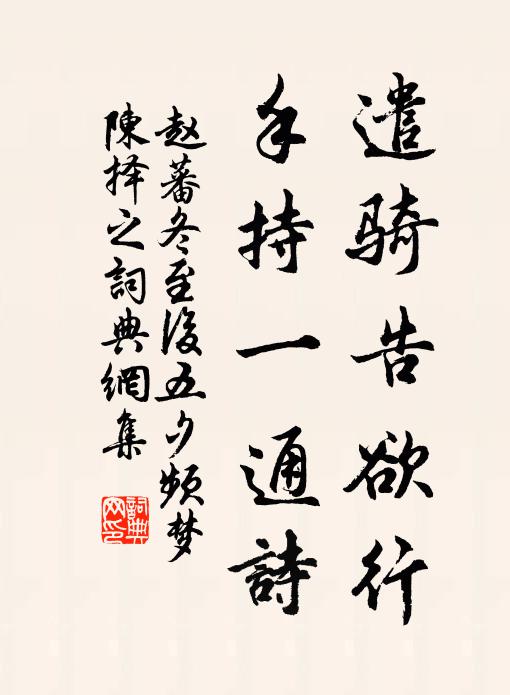 遣骑告欲行
手持一通詩
赵蕃冬至後五夕频梦
陳择之詞典網集
詞典
网印